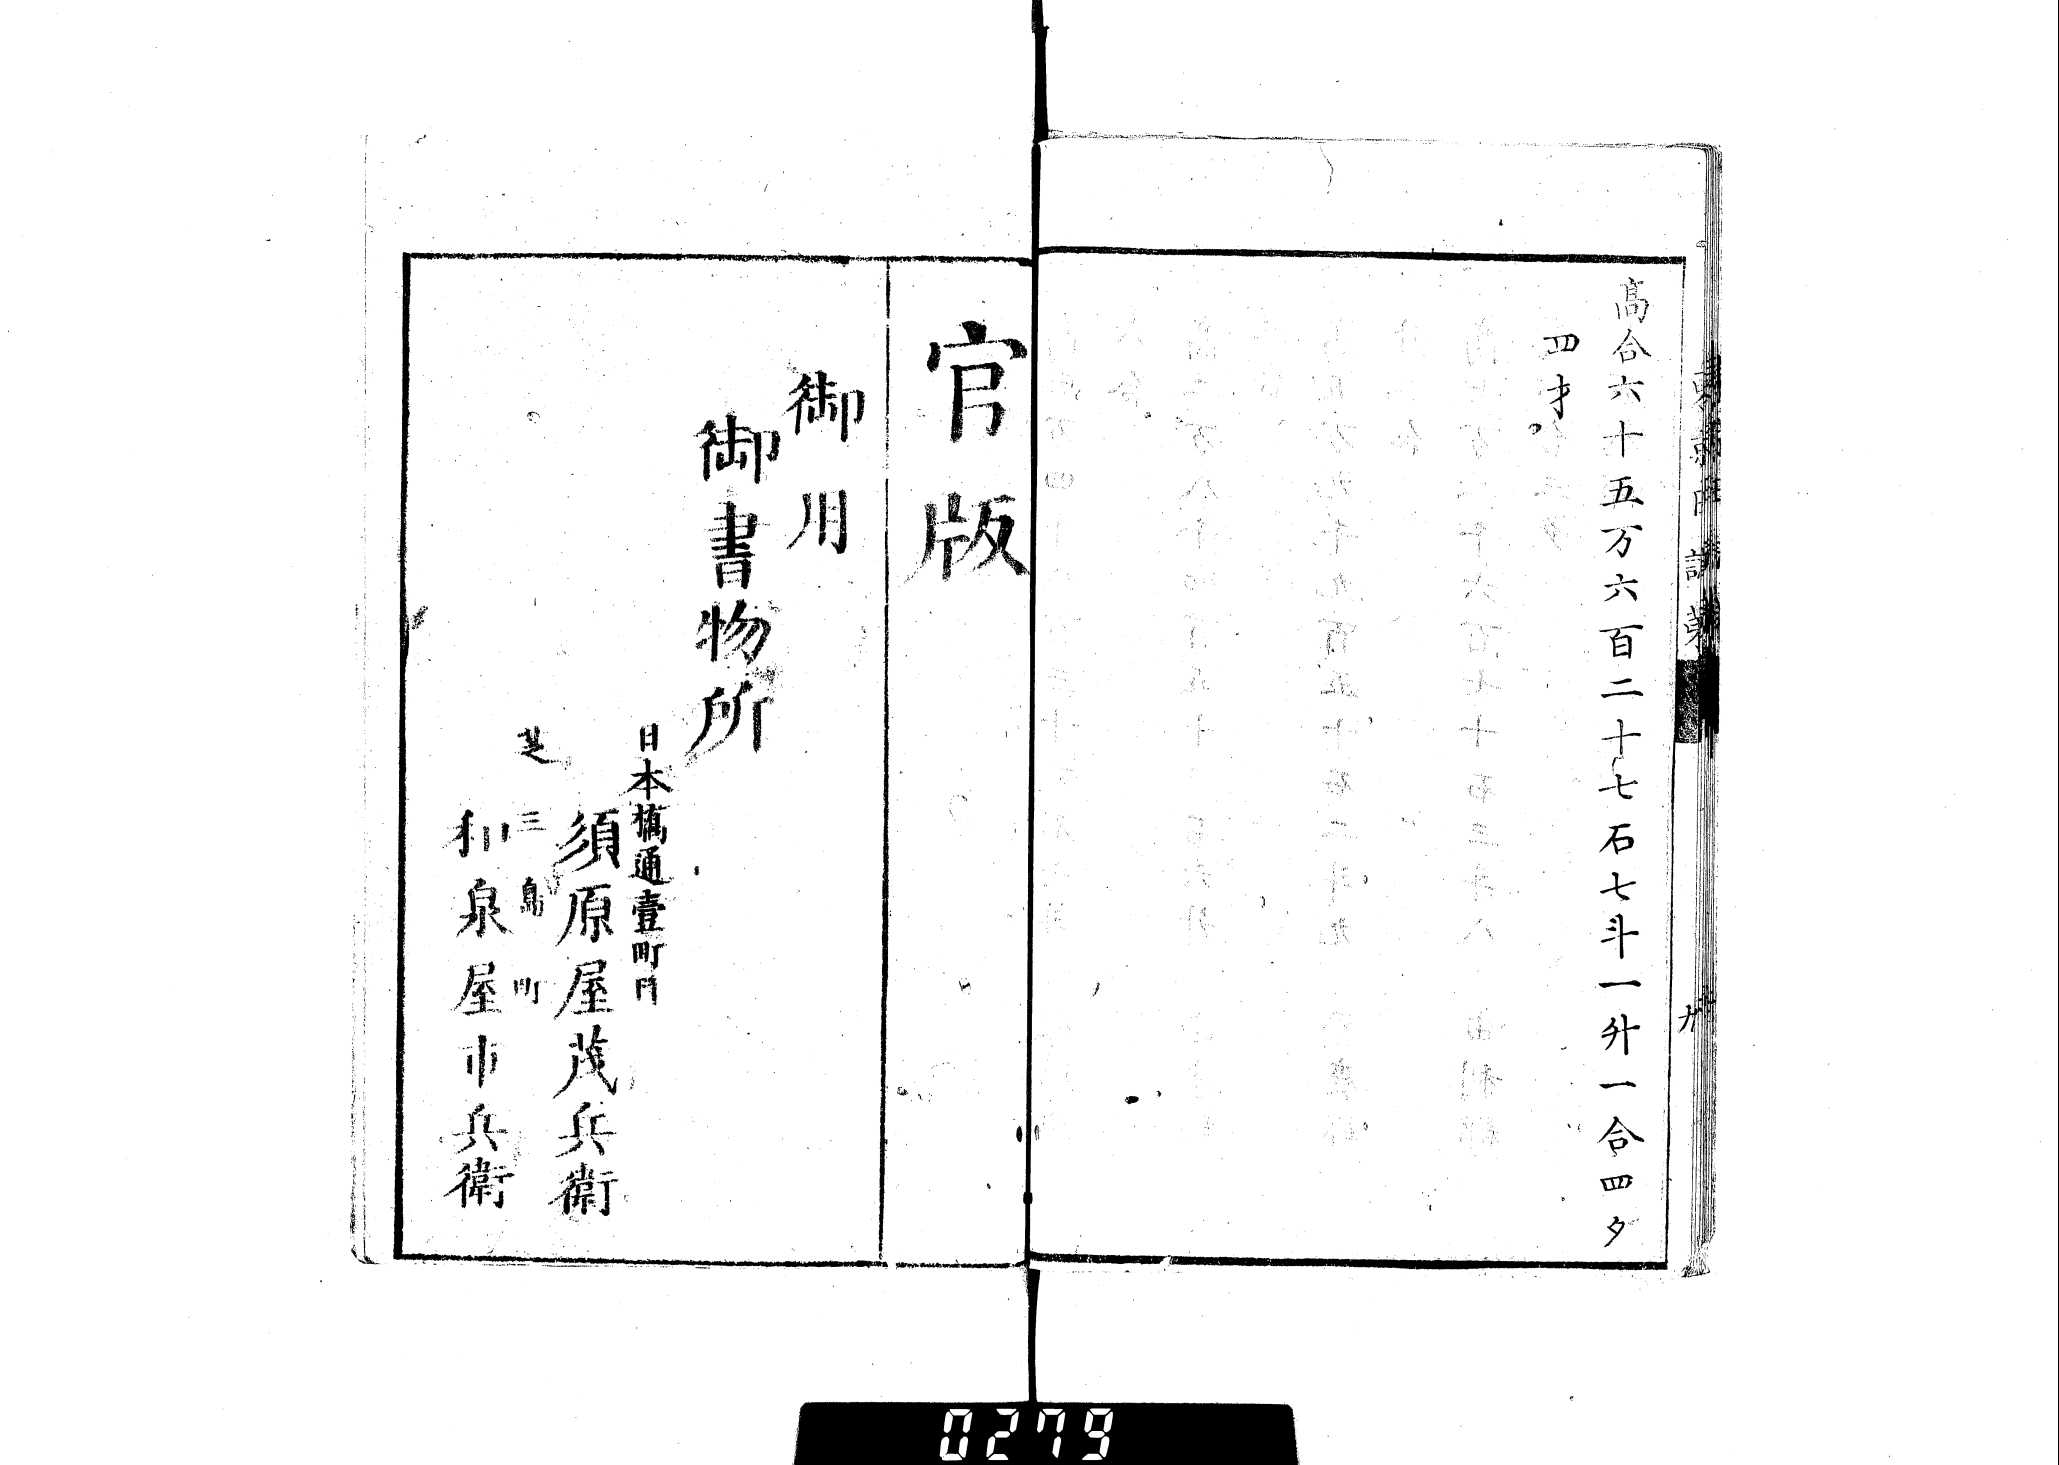 高合六十五万六百二十七石七斗一升一合四夕
四才
官版
御用
御書物所
日本橋通壹町目
須原屋茂兵衛
芝三島町
和泉屋市兵衛
0279